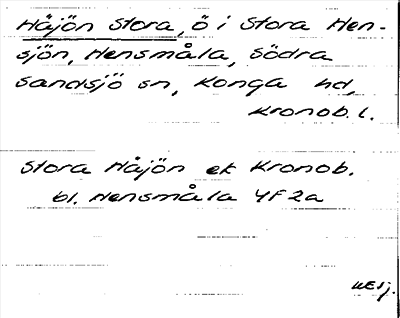 Håjön Stora, ö i Stora Hen-
sjön, Hensmåla, Södra
Sandsjö sn, Konga hd,
Kronob. l.
Stora Håjön ek Kronob.
bl. Hensmåla 4F2a
WEij.